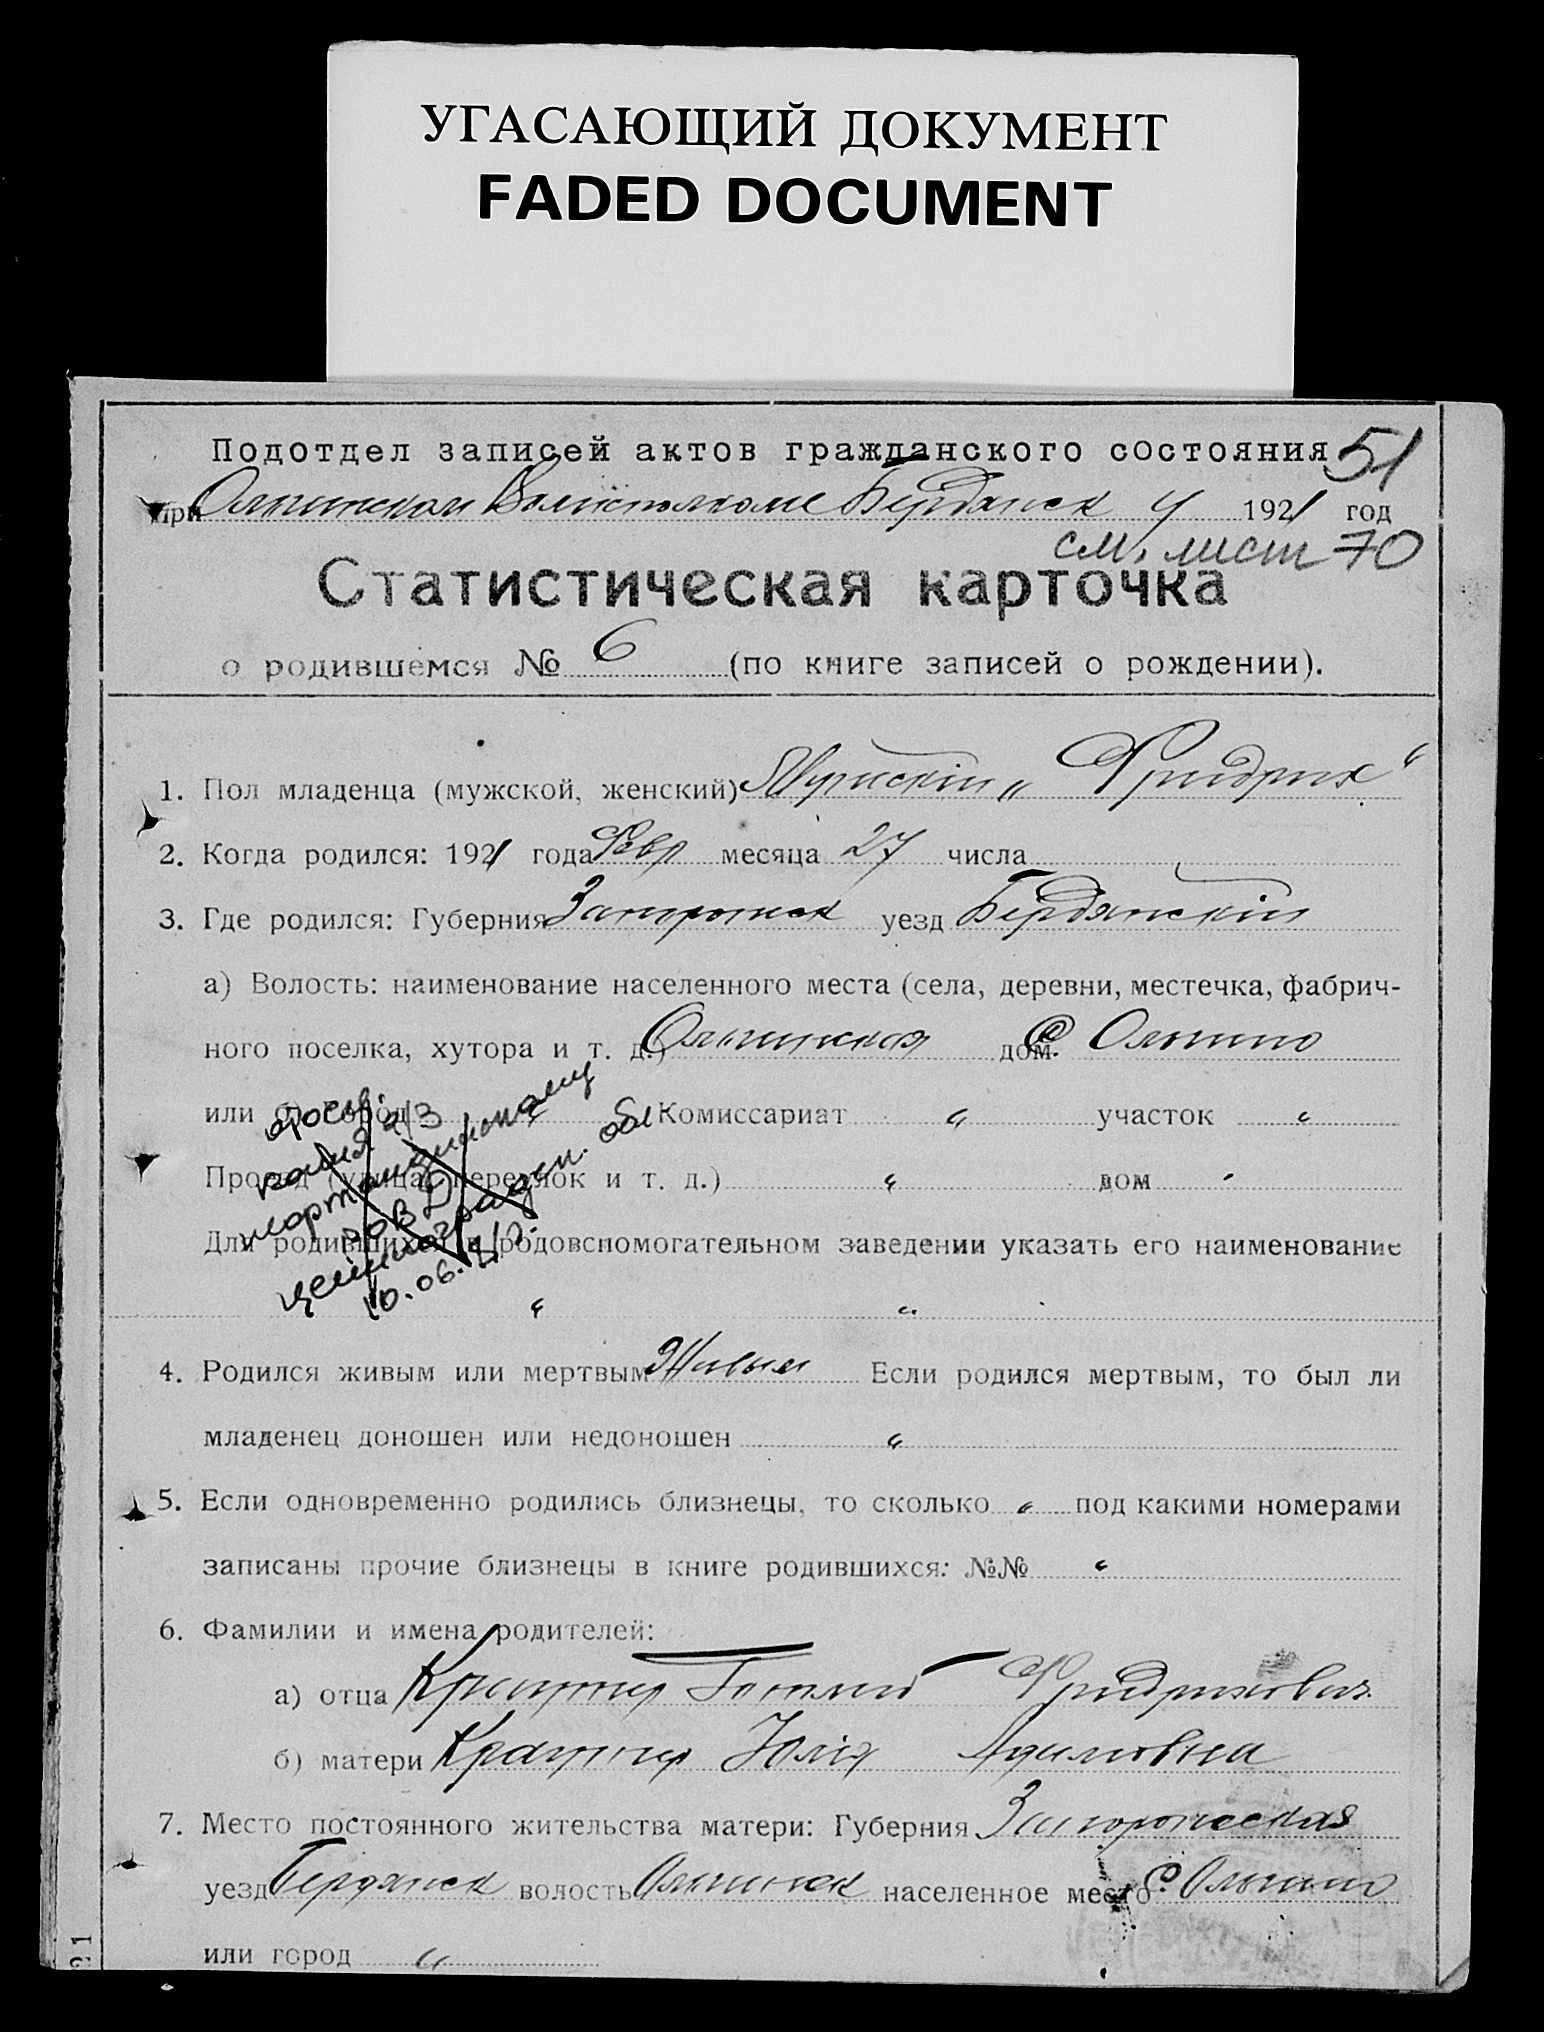 УГАСАЮЩИЙ ДОКУМЕНТ
FADED DOCUMENT
Подотдел записей актов гражданского состояния 51
при Ольгинском Волисполкоме Бердянск у 1921 год
см. лист 70
Статистическая карточка
о родившемся № 6 (по книге записей о рождении).
1. Пол младенца (мужской, женский) Мужскій „Фридрих“
2. Когда родился: 1921 года Февр месяца 27 числа
3. Где родился: Губерния Запорожск уезд Бердянскій
а) Волость: наименование населенного места (села, деревни, местечка, фабрич-
ного поселка, хутора и т. д.) Ольгинская дом. с Ольгино
или б) город „ Комиссариат „ участок „
Проезд (улица, переулок и т. д.) „ дом „
Для родившихся в родовспомогательном заведении указать его наименование
„ „
10.06.
4. Родился живым или мертвым Живым Если родился мертвым, то был ли
младенец доношен или недоношен „
5. Если одновременно родились близнецы, то сколько „ под какими номерами
записаны прочие близнецы в книге родившихся: №№ „
6. Фамилии и имена родителей:
а) отца Краутер Готлиб Фридрихович
б) матери Краутер Юлія Адамовна
7. Место постоянного жительства матери: Губерния Запорожская
уезд Бердянск волость Ольгинск населенное место с. Ольгино
или город „